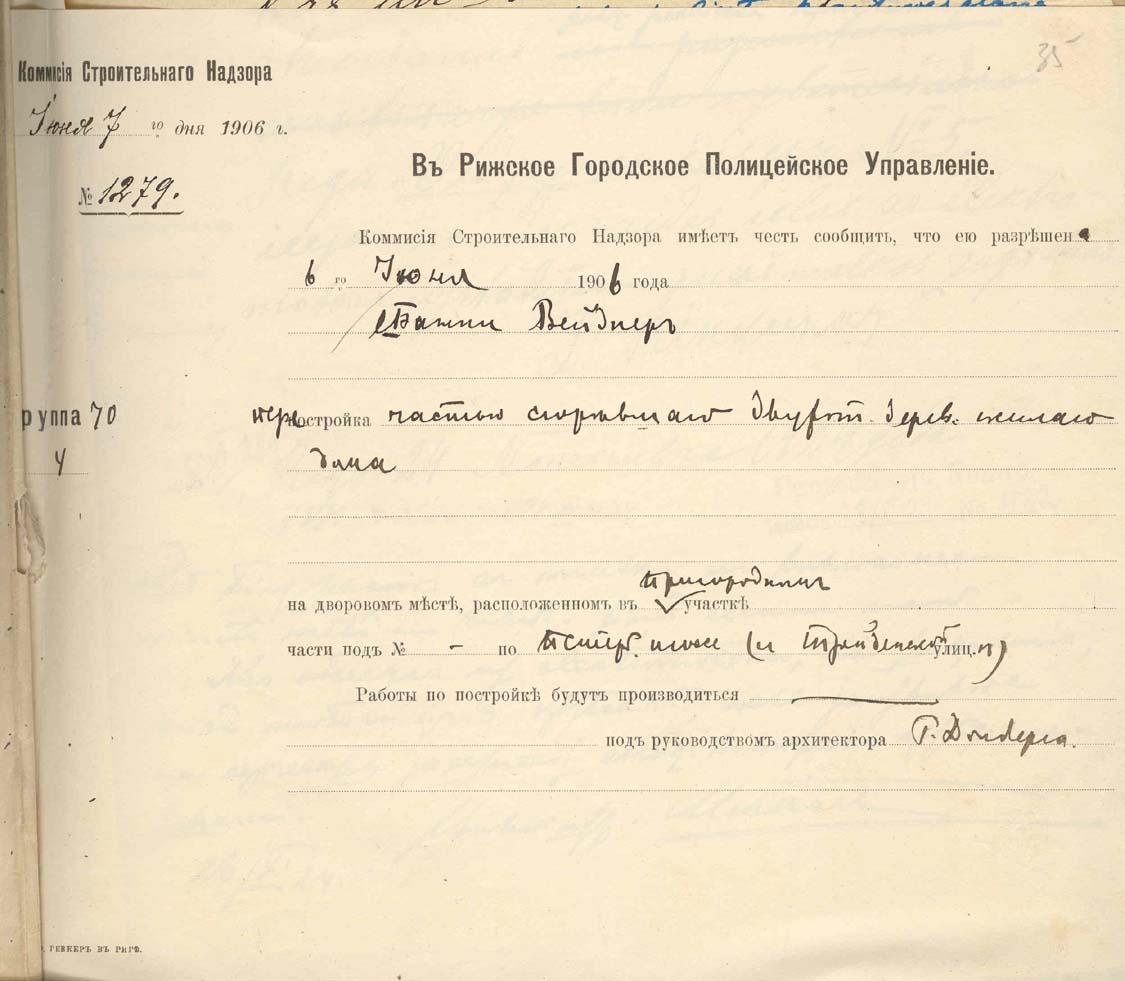 35
Коммисія Строительнаго Надзора
Іюня 7 го дня 1906 г.
№ 1279.
Въ Рижское Городское Полицейское Управленіе.
Коммисія Строительнаго Надзора имѣетъ честь сообщить, что ею разрѣшена
6 го Іюня 1906 года
Вейднеръ
руппа 70
4
перепостройка частью сгорѣвшаго двухэт. дерев. жилаго
дома
на дворовомъ мѣстѣ, расположенномъ въ Пригородномъ участкѣ
части подъ № - по Петерб. шоссе (и улиц.)
Работы по постройкѣ будутъ производиться
подъ руководствомъ архитектора Г. Домберга.
ГЕККЕРЪ ВЪ РИГѢ.